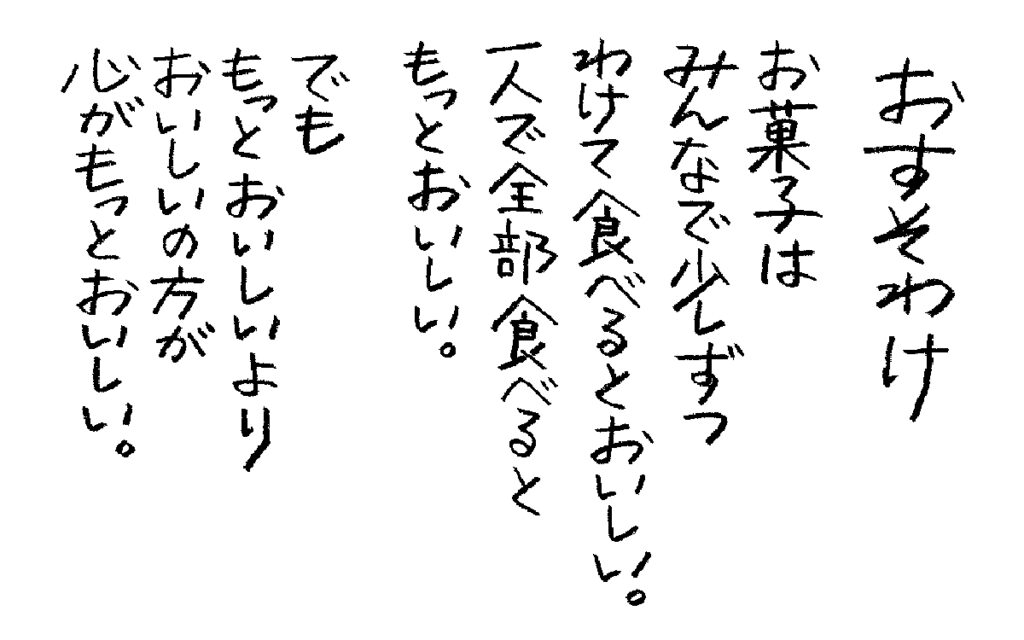 おすそわけ
お菓子は
みんなで少しずつ
わけて食べるとおいしい。
一人で全部食べると
もっとおいしい。
でも
もっとおいしいより
おいしいの方が
心がもっとおいしい。